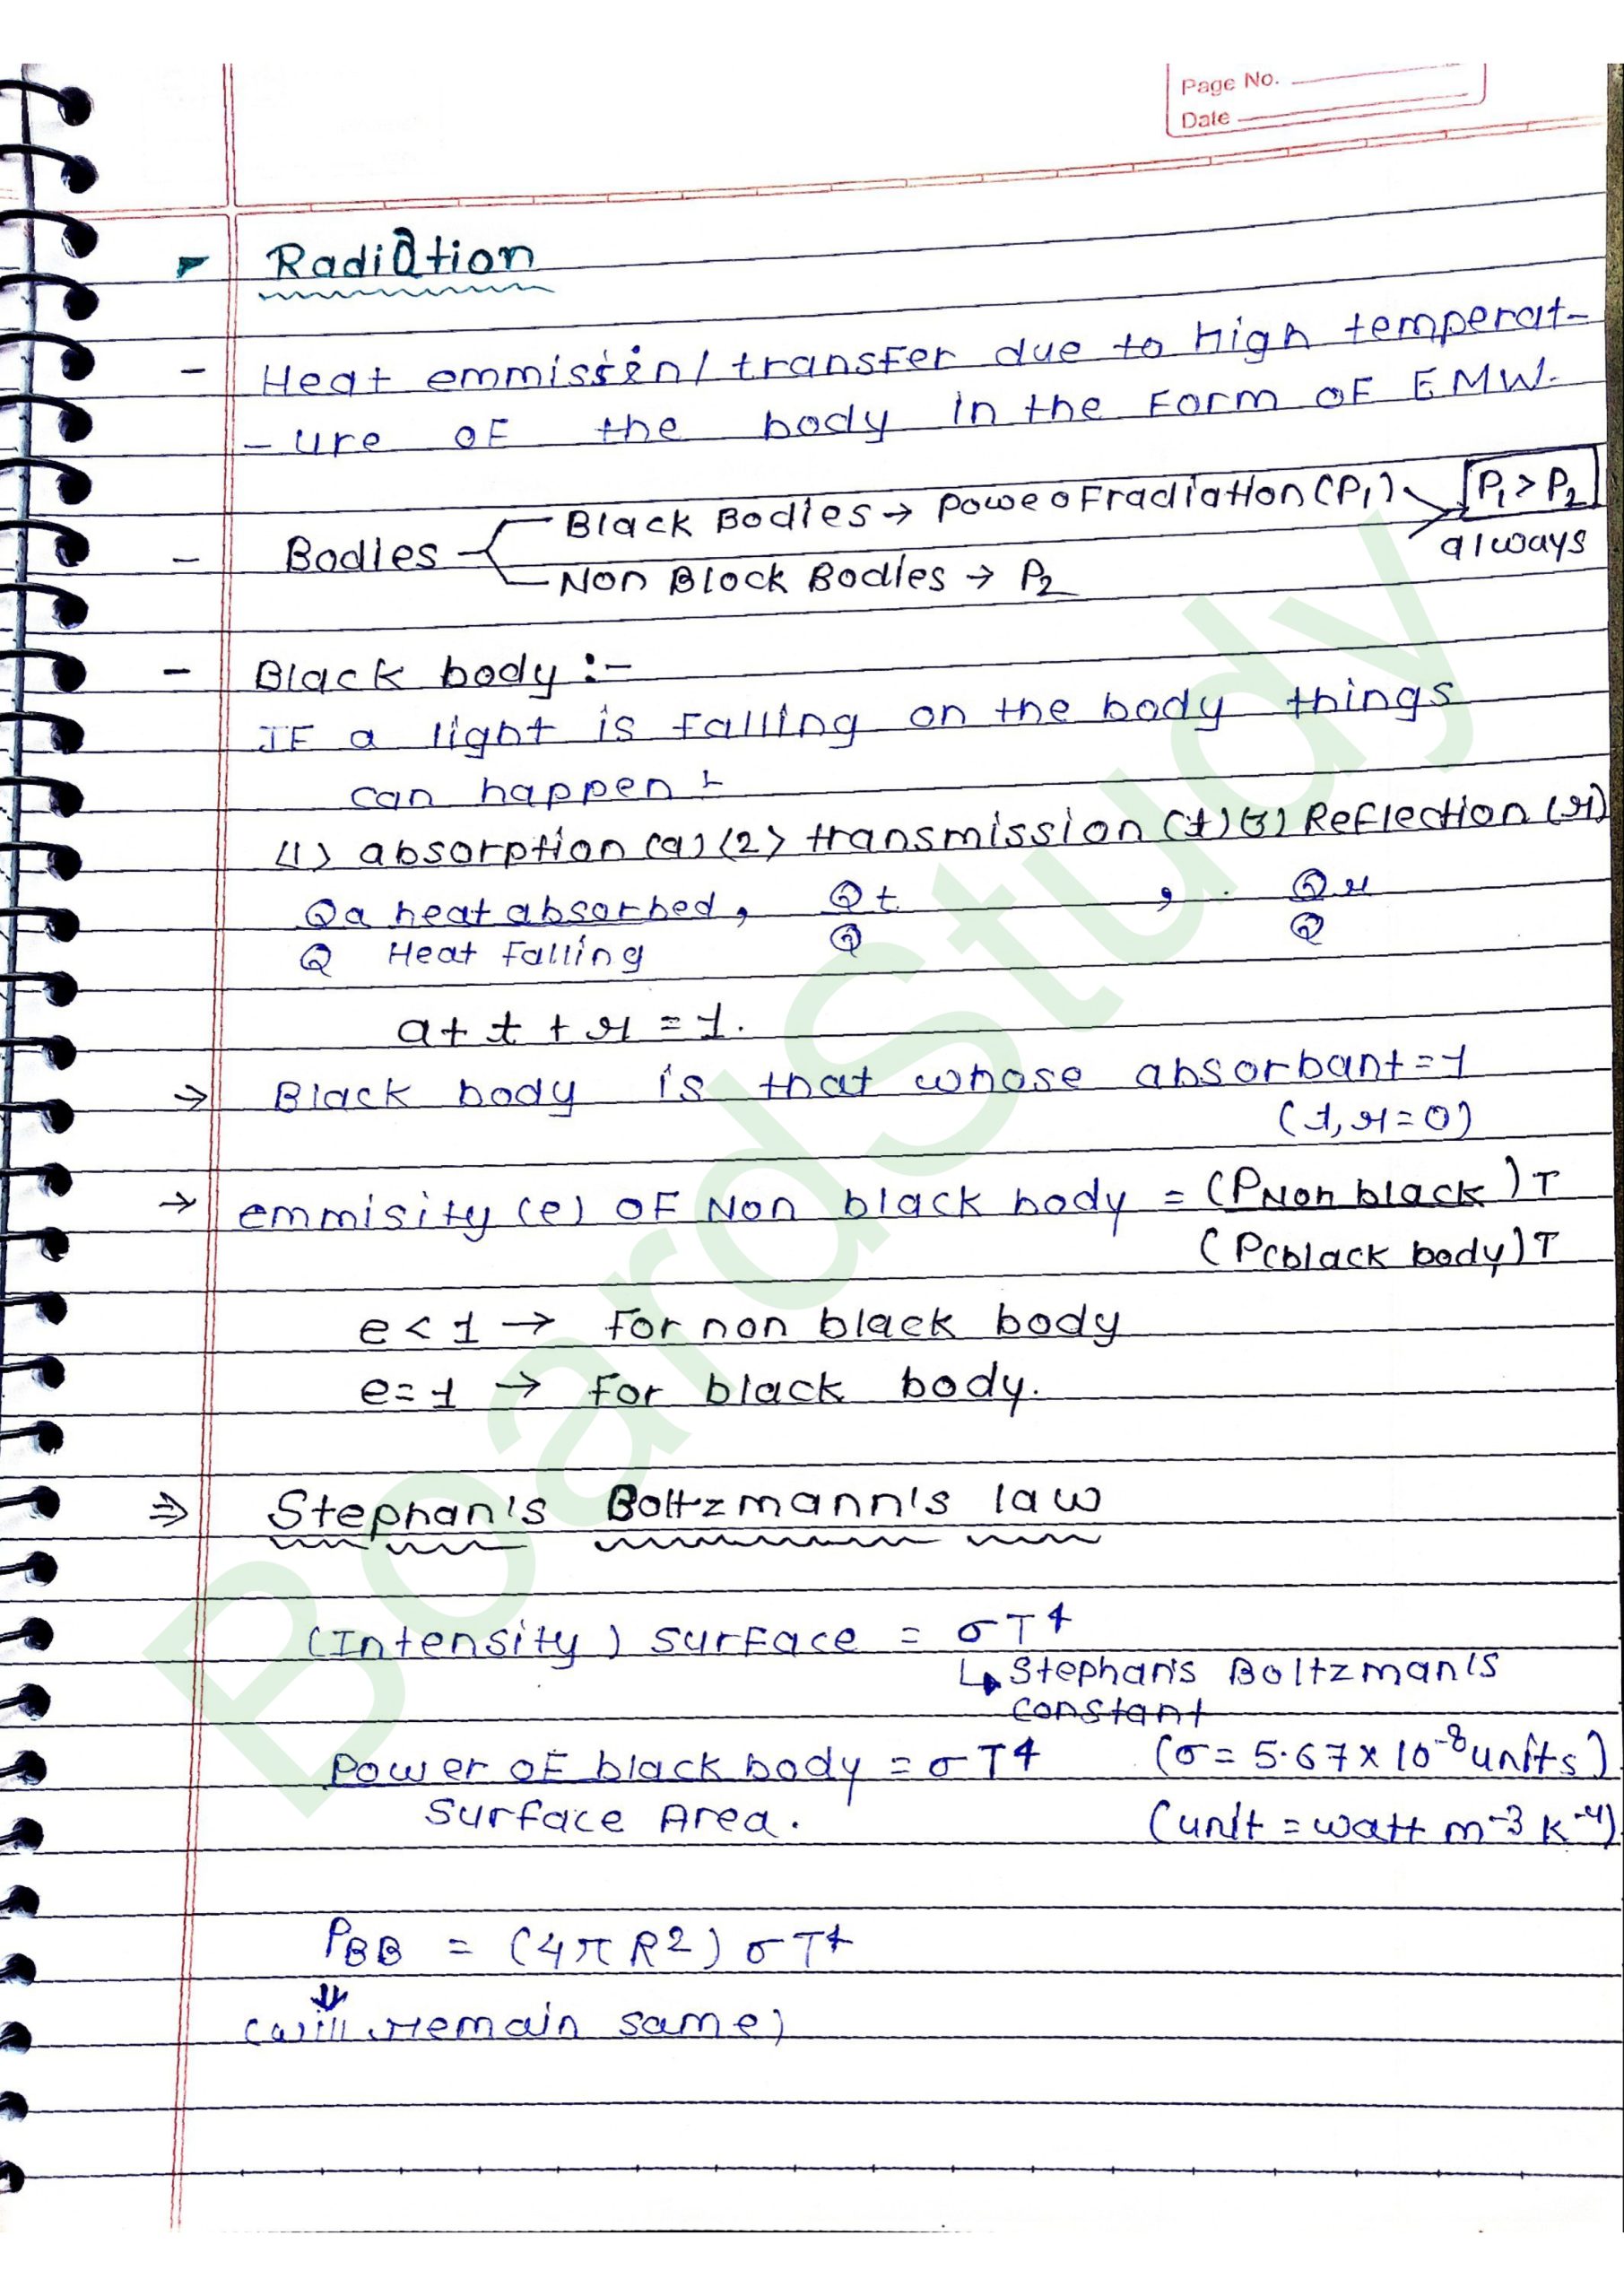 Page No.
Date
Radiation
- Heat emmission/transfer due to high temperat-
- ure of the body in the form of EMW.
- Bodies
Black Bodies → Powe of radiation (P1)
P1 > P2
always
Non Block Bodies → P2
- Black body :-
If a light is falling on the body things
can happen :-
(1) absorption (a) (2) transmission (t) (3) Reflection (r)
Qa heat absorbed, Qt , Qr
Q Heat falling Q Q
a + t + r = 1.
→ Black body is that whose absorbant = 1
(t, r = 0)
→ emmisity (e) of Non black body = (PNon black) T
(P(black body) T
e < 1 → for non black body
e = 1 → for black body.
⇒ Stephan's Boltzmann's law
(Intensity) surface = σT⁴
↳ Stephan's Boltzman's
constant
Power of black body = σT⁴ (σ = 5.67 × 10⁻⁸ units)
Surface Area. (unit = watt m⁻³ K⁻⁴)
PBB = (4πR²) σT⁴
(will remain same)
BoardStudy